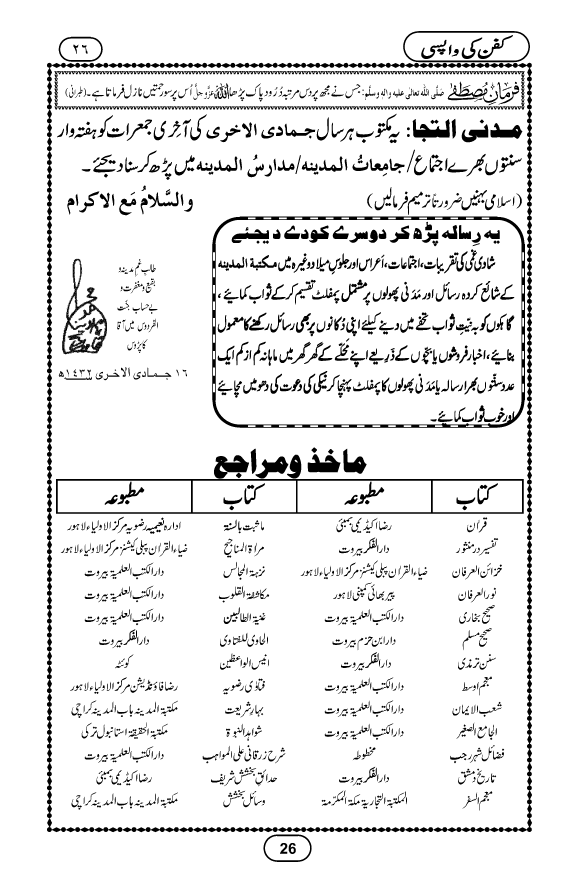 کفن کی واپسی
۲٦
فرمانِ مصطفٰے صلَّی اللہ تعالٰی علیہ واٰلہٖ وسلَّم: جس نے مجھ پر دس مرتبہ دُرُود پاک پڑھا اللہ عزَّوجلَّ اُس پر سو رحمتیں نازل فرماتا ہے۔ (طبرانی)
مدنی التجا: یہ مکتوب ہر سال جمادی الاخری کی آخِری جمعرات کو ہفتہ وار
سنتوں بھرے اجتماع/جامِعاتُ المدینہ/مدارسُ المدینہ میں پڑھ کر سنا دیجئے۔
(اسلامی بہنیں ضرورتاً ترمیم فرمالیں)
والسَّلامُ مَع الاکرام
طالبِ غمِ مدینہ و
بقیع و مغفرت و
بے حساب جنّت
الفردوس میں آقا
کا پڑوس
۱٦ جمادی الاخری ۱٤۳۲ھ
یہ رِسالہ پڑھ کر دوسرے کو دے دیجئے
شادی غمی کی تقریبات، اجتماعات، اَعراس اور جلوسِ میلاد وغیرہ میں مکتبۃ المدینہ
کے شائع کردہ رسائل اور مَدَنی پھولوں پر مشتمل پمفلٹ تقسیم کرکے ثواب کمائیے،
گاہکوں کو بہ نیّتِ ثواب تحفے میں دینے کیلئے اپنی دُکانوں پر بھی رسائل رکھنے کا معمول
بنائیے، اخبار فروشوں یا بچّوں کے ذَرِیعے اپنے مَحَلّے کے گھر گھر میں ماہانہ کم از کم ایک
عدد سنّتوں بھرا رسالہ یا مَدَنی پھولوں کا پمفلٹ پہنچا کر نیکی کی دعوت کی دھومیں مچائیے
اور خوب ثواب کمائیے۔
ماخذ ومراجع
کتاب مطبوعہ کتاب مطبوعہ
قراٰن رضا اکیڈیمی بمبئی ماثبت بالسنۃ ادارہ نعیمیہ رضویہ مرکز الاولیاء لاہور
تفسیر در منثور دارالفکر بیروت مراٰۃ المناجیح ضیاء القراٰن پبلی کیشنز مرکز الاولیاء لاہور
خزائن العرفان ضیاء القراٰن پبلی کیشنز مرکز الاولیاء لاہور نزہۃ المجالس دارالکتب العلمیۃ بیروت
نور العرفان پیر بھائی کمپنی لاہور مکاشفۃ القلوب دارالکتب العلمیۃ بیروت
صحیح بخاری دارالکتب العلمیۃ بیروت غنیۃ الطالبین دارالکتب العلمیۃ بیروت
صحیح مسلم دارابن حزم بیروت الحاوی للفتاوی دارالفکر بیروت
سنن ترمذی دارالفکر بیروت انیس الواعظین کوئٹہ
معجم اوسط دارالکتب العلمیۃ بیروت فتاوٰی رضویہ رضا فاؤنڈیشن مرکز الاولیاء لاہور
شعب الایمان دارالکتب العلمیۃ بیروت بہار شریعت مکتبۃ المدینہ باب المدینہ کراچی
الجامع الصغیر دارالکتب العلمیۃ بیروت شواہد النبوۃ مکتبۃ الحقیقۃ استانبول ترکی
فضائل شہر رجب مخطوطہ شرح زرقانی علی المواہب دارالکتب العلمیۃ بیروت
تاریخ دمشق دارالفکر بیروت حدائق بخشش شریف رضا اکیڈیمی بمبئی
معجم السفر المکتبۃ التجاریۃ مکۃ المکرّمۃ وسائل بخشش مکتبۃ المدینہ باب المدینہ کراچی
26